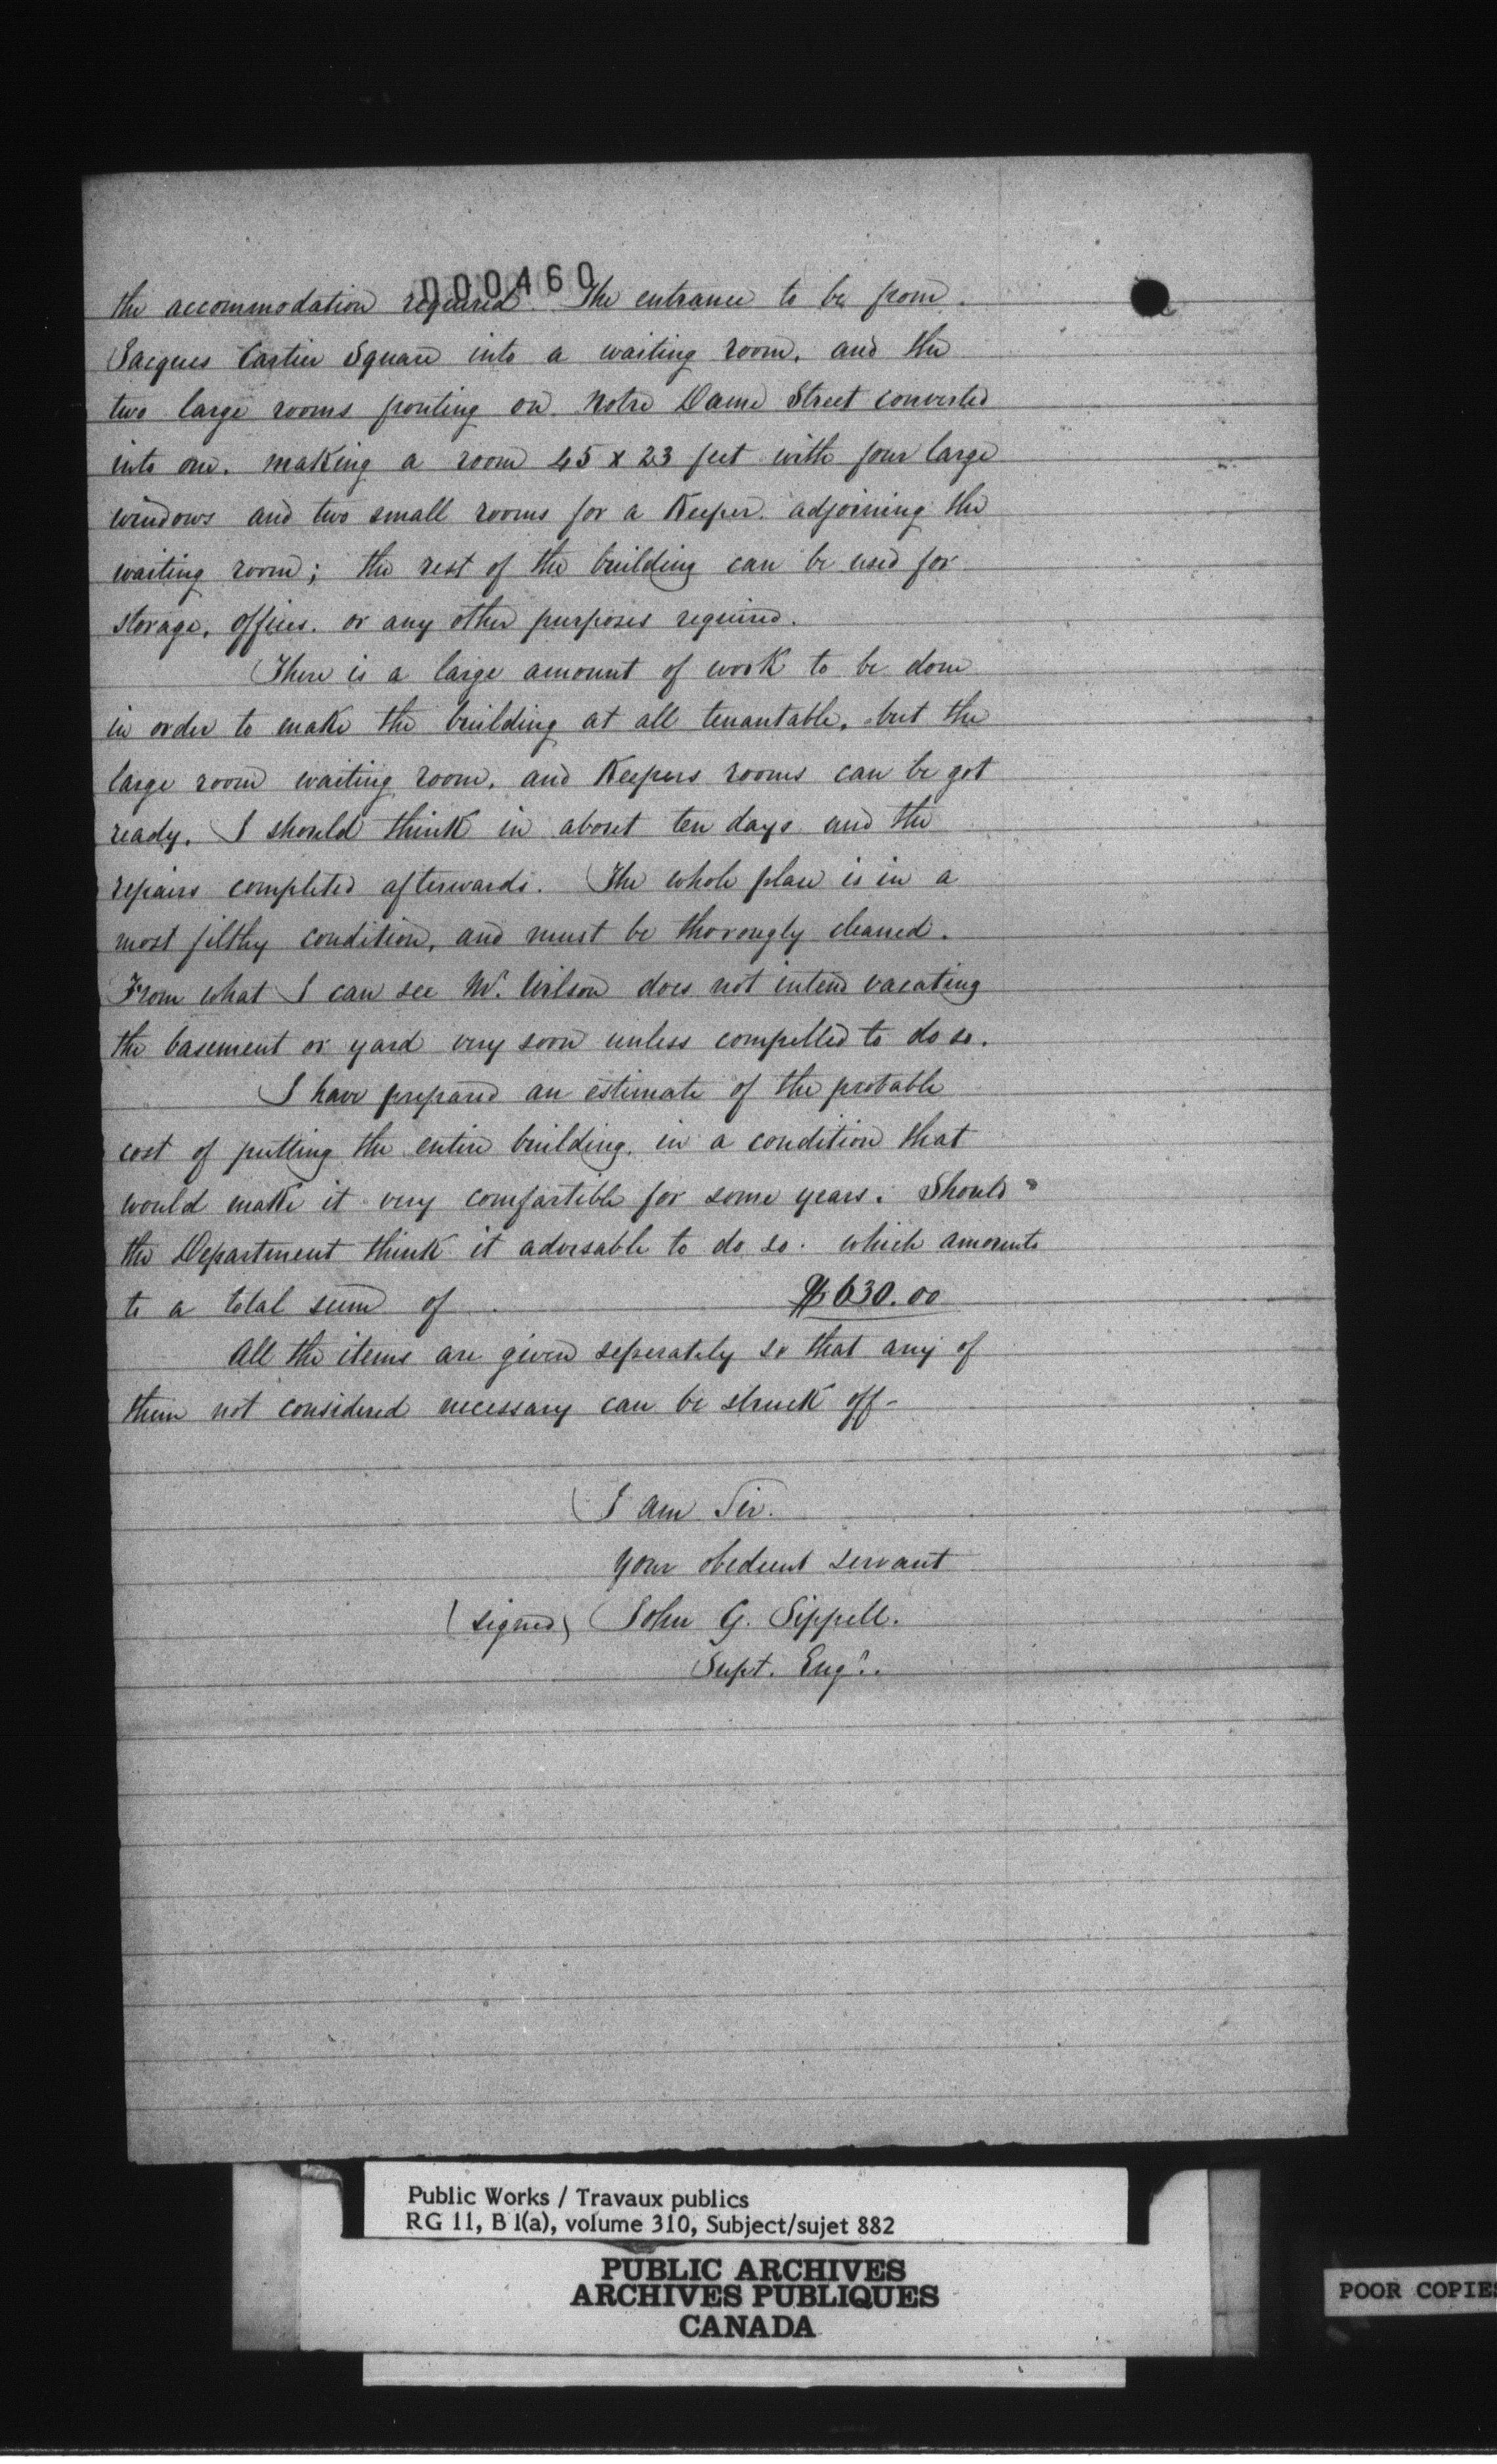 000460
the accommodation required. The entrance to be from
Jacques Cartier Square into a waiting room, and the
two large rooms fronting on Notre Dame Street converted
into one, making a room 45 x 23 feet with four large
windows and two small rooms for a Keeper adjoining the
waiting room; the rest of the building can be used for
storage, offices, or any other purposes required.
There is a large amount of work to be done
in order to make the building at all tenantable, but the
large room waiting room, and Keepers rooms can be got
ready, I should think in about ten days and the
repairs completed afterwards. The whole place is in a
most filthy condition, and must be thorougly cleaned.
From what I can see Mr. Wilson does not intend vacating
the basement or yard very soon unless compelled to do so.
I have prepared an estimate of the probable
cost of putting the entire building in a condition that
would make it very comfortible for some years. Should
the Department think it advisable to do so. which amounts
to a total sum of $630.00
All the items are given seperately so that any of
them not considered necessary can be struck off-
I am Sir.
Your obedient servant
(signed) John G. Sippell.
Supt. Engr.
Public Works / Travaux publics
RG 11, B 1(a), volume 310, Subject/sujet 882
PUBLIC ARCHIVES
ARCHIVES PUBLIQUES
CANADA
POOR COPIES